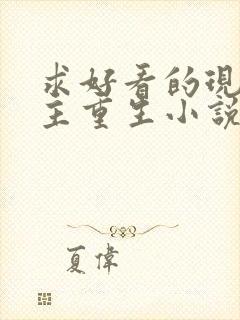 求好看的現
主重生小說
夏偉